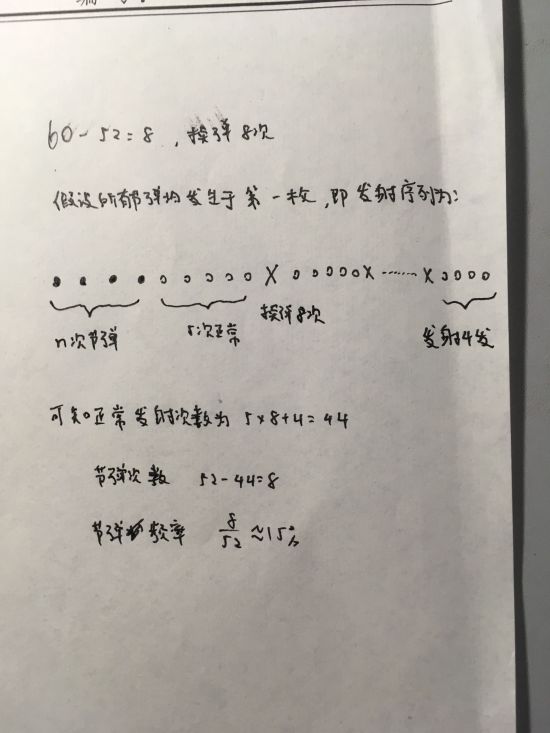 60-52=8，换弹8次
假设所有节弹均发生于第一枚，即发射序列为：
● ● ● ● ○ ○ ○ ○ ○ X ○○○○○X……X○○○○
n次节弹 5次正常 换弹8次 发射4发
可知正常发射次数为 5×8+4=44
节弹次数 52-44=8
节弹频率 8/52≈15%